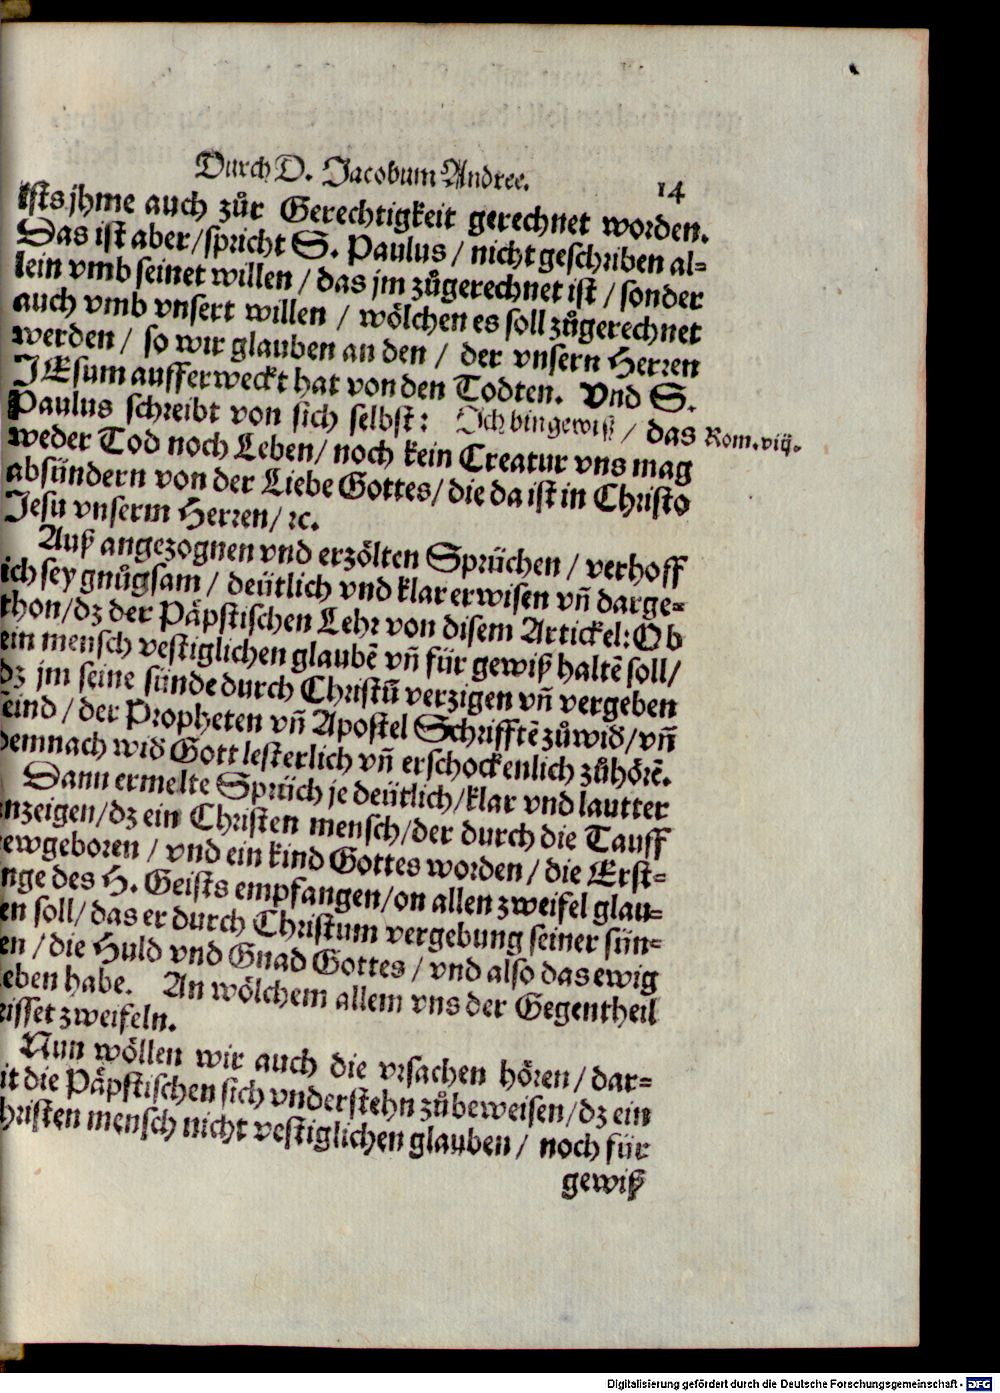 Durch D. Jacobum Andree. 14
ists jhme auch zůr Gerechtigkeit gerechnet worden.
Das ist aber/spricht S. Paulus / nicht geschriben al=
lein vmb seinet willen / das jm zůgerechnet ist / sonder
auch vmb vnsert willen / wölchen es soll zůgerechnet
werden / so wir glauben an den / der vnsern Herren
JEsum aufferweckt hat von den Todten. Vnd S.
Paulus schreibt von sich selbst: Ich bin gewiß / das
Rom. viij.
weder Tod noch Leben/ noch kein Creatur vns mag
absündern von der Liebe Gottes/ die da ist in Christo
Jesu vnserm Herren/ ꝛc.
Auß angezognen vnd erzölten Sprüchen / verhoff
ich sey gnůgsam / deütlich vnd klar erwisen vñ darge=
thon/dz der Päpstischen Lehr von disem Artickel: Ob
ein mensch vestiglichen glaubē vñ für gewiß haltē soll/
dz jm seine sünde durch Christū verzigen vñ vergeben
seind / der Propheten vñ Apostel Schrifftē zůwid/vñ
demnach wid Gott lesterlich vñ erschockenlich zůhörē.
Dann ermelte Sprüch je deütlich/klar vnd lautter
nzeigen/dz ein Christen mensch/der durch die Tauff
ewgeboren / vnd ein kind Gottes worden / die Erst=
nge des H. Geists empfangen/on allen zweifel glau=
en soll/ das er durch Christum vergebung seiner sün=
en / die Huld vnd Gnad Gottes / vnd also das ewig
eben habe. An wölchem allem vns der Gegentheil
risset zweifeln.
Nun wöllen wir auch die vrsachen hören / dar=
it die Päpstischen sich vnderstehn zůbeweisen/dz ein
hristen mensch nicht vestiglichen glauben / noch für
gewiß
Digitalisierung gefördert durch die Deutsche Forschungsgemeinschaft - DFG